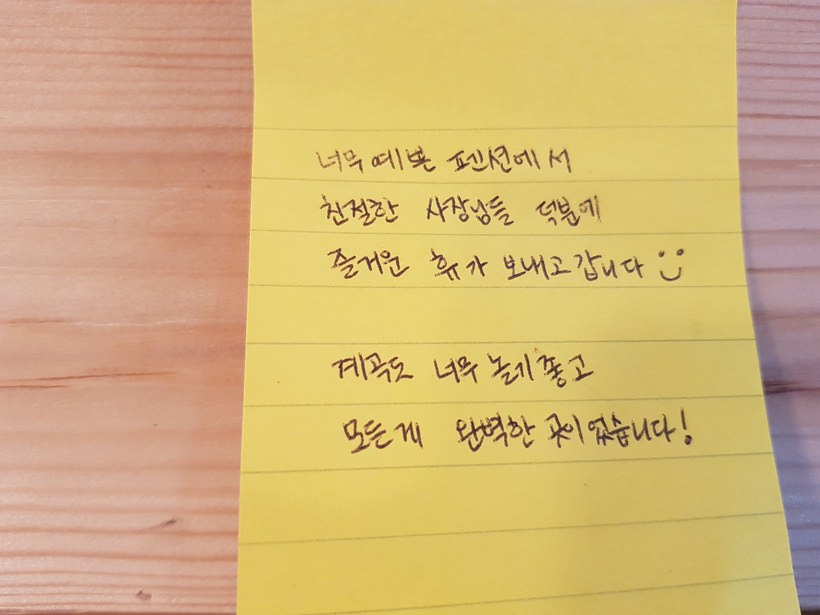 너무 예쁜 펜션에서
친절한 사장님들 덕분에
즐거운 휴가 보내고 갑니다 :)
계곡도 너무 놀기 좋고
모든게 완벽한 곳이었습니다!